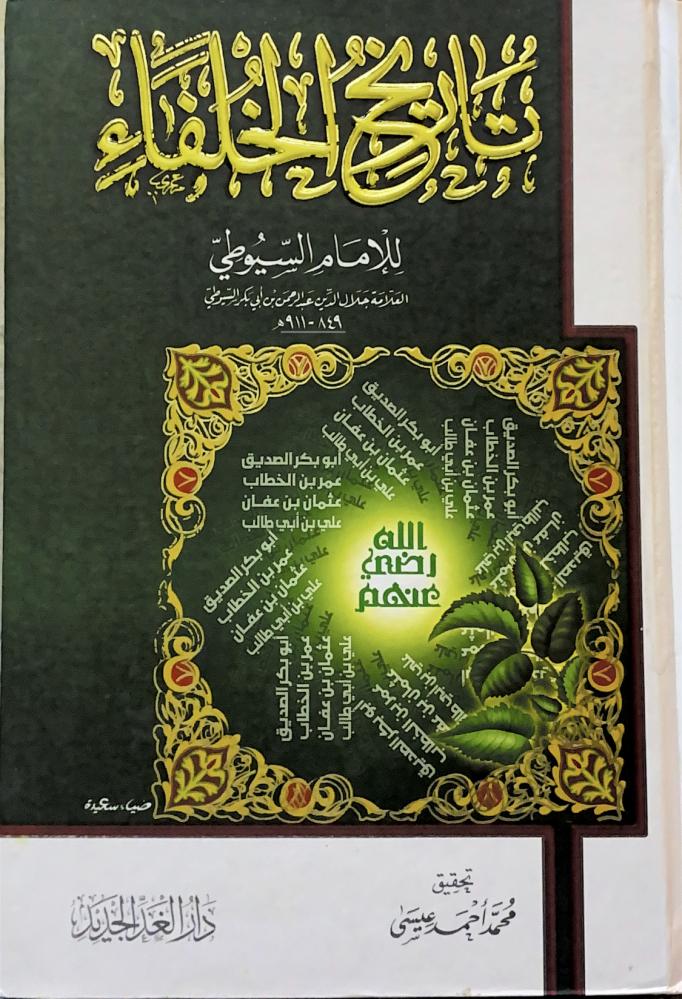 تَارِيخُ الْخُلَفَاءِ
للإمام السِّيُوطيّ
العلامة جلال الدين عبد الرحمن بن أبي بكر السيوطي
٨٤٩-٩١١هـ
أبو بكر الصديق
عمر بن الخطاب
عثمان بن عفان
علي بن أبي طالب
أبو بكر الصديق
عمر بن الخطاب
عثمان بن عفان
علي بن أبي طالب
أبو بكر الصديق
عمر بن الخطاب
عثمان بن عفان
علي بن أبي طالب
رضي الله
عنهم
أبو بكر الصديق
عمر بن الخطاب
عثمان بن عفان
علي بن أبي طالب
أبو بكر الصديق
عمر بن الخطاب
عثمان بن عفان
علي بن أبي طالب
ضياء سعيدة
تحقيق
محمَّد أحمد عيسى
دَارُ الغَدِ الجَدِيد